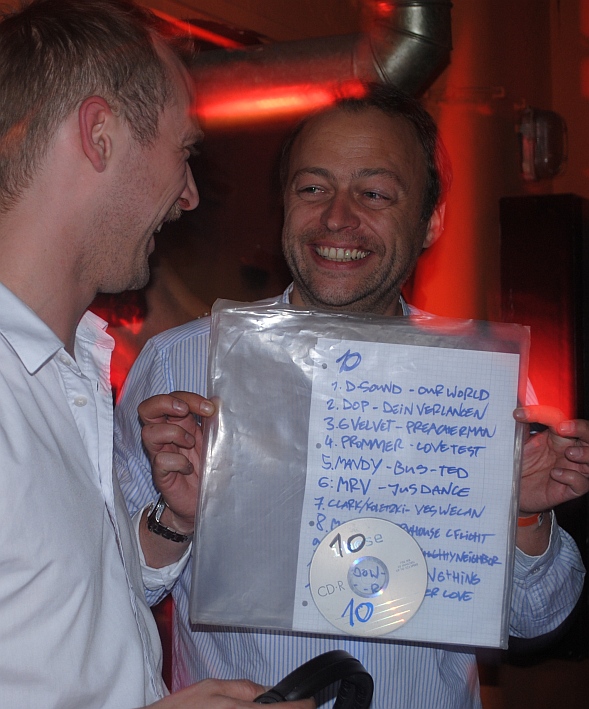 10
1. D-SOUND - OUR WORLD
2. DOP - DEIN VERLANGEN
3. G VELVET - PREACHERMAN
4. PROMMER - LOVETEST
5. MANDY - BUS-TED
6: MRV - JUSDANCE
7. CLARK/KOLETZKI - YES WE CAN
8. M HOUSE C FLIGHT
NAUGHTY NEIGHBOR
NOTHING
LOVE
10
CD-R
10